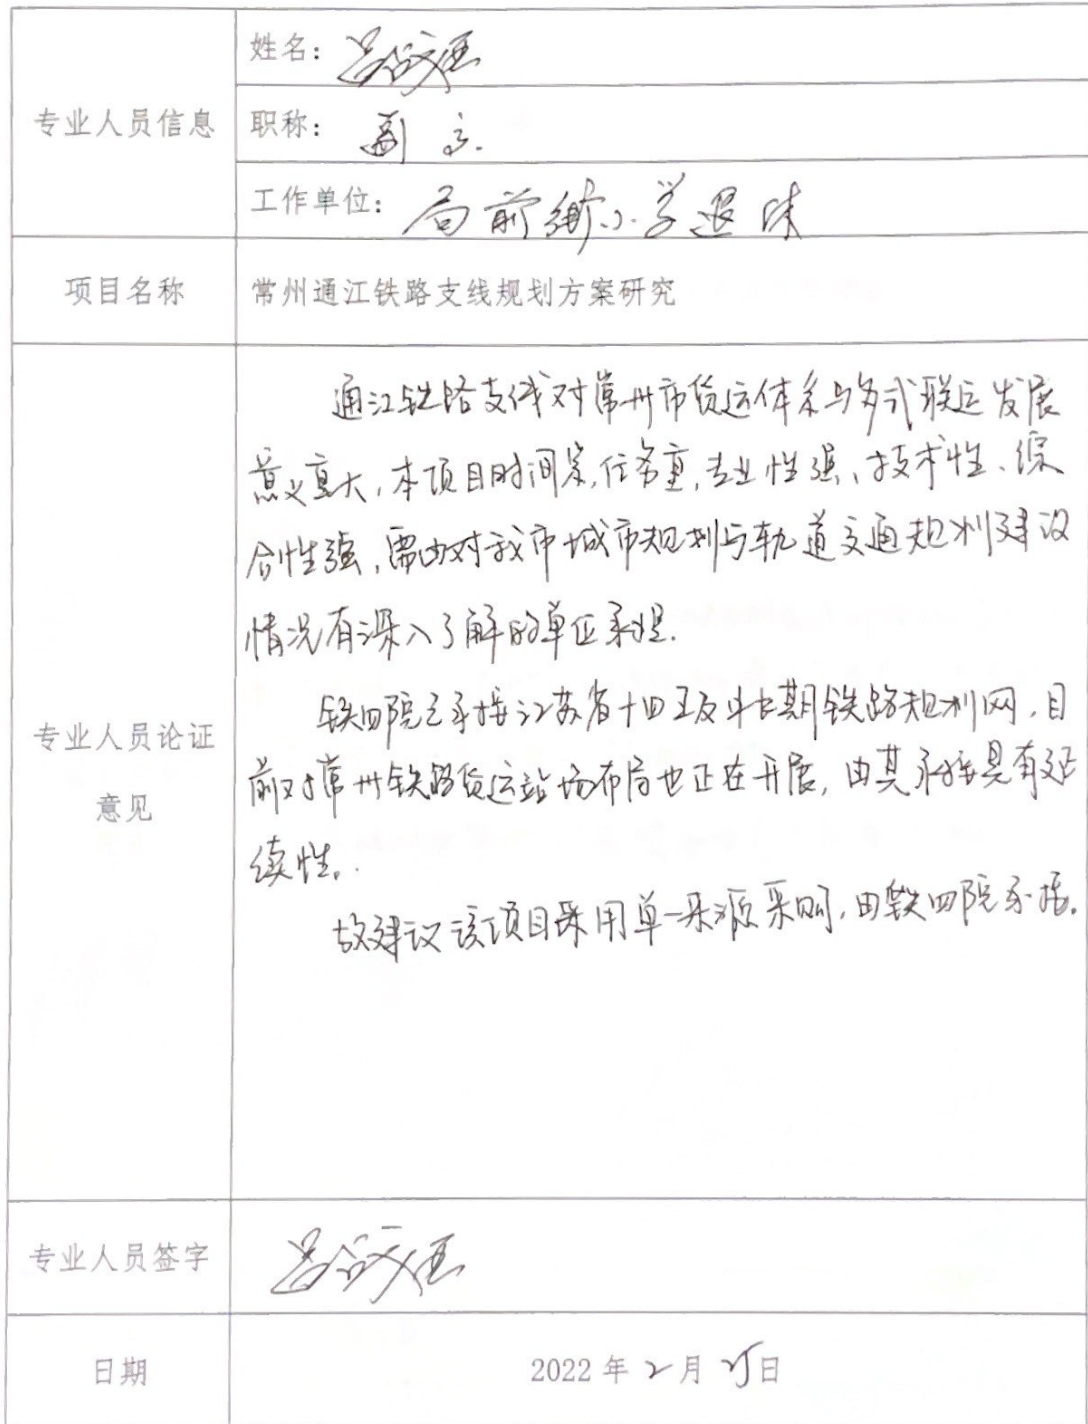 姓名：
专业人员信息
职称：副高.
工作单位：局前街小学退休
项目名称
常州通江铁路支线规划方案研究
通江铁路支线对常州市货运体系与多式联运发展
意义重大，本项目时间紧，任务重，专业性强、技术性、综
合性强，需由对我市城市规划与轨道交通规划建设
情况有深入了解的单位承担.
铁四院已承接江苏省十四五及中长期铁路规划网，目
前对常州铁路货运站场布局也正在开展，由其承接具有延
续性。
故建议该项目采用单一来源采购，由铁四院承接.
专业人员论证
意见
专业人员签字
日期
2022年2月25日